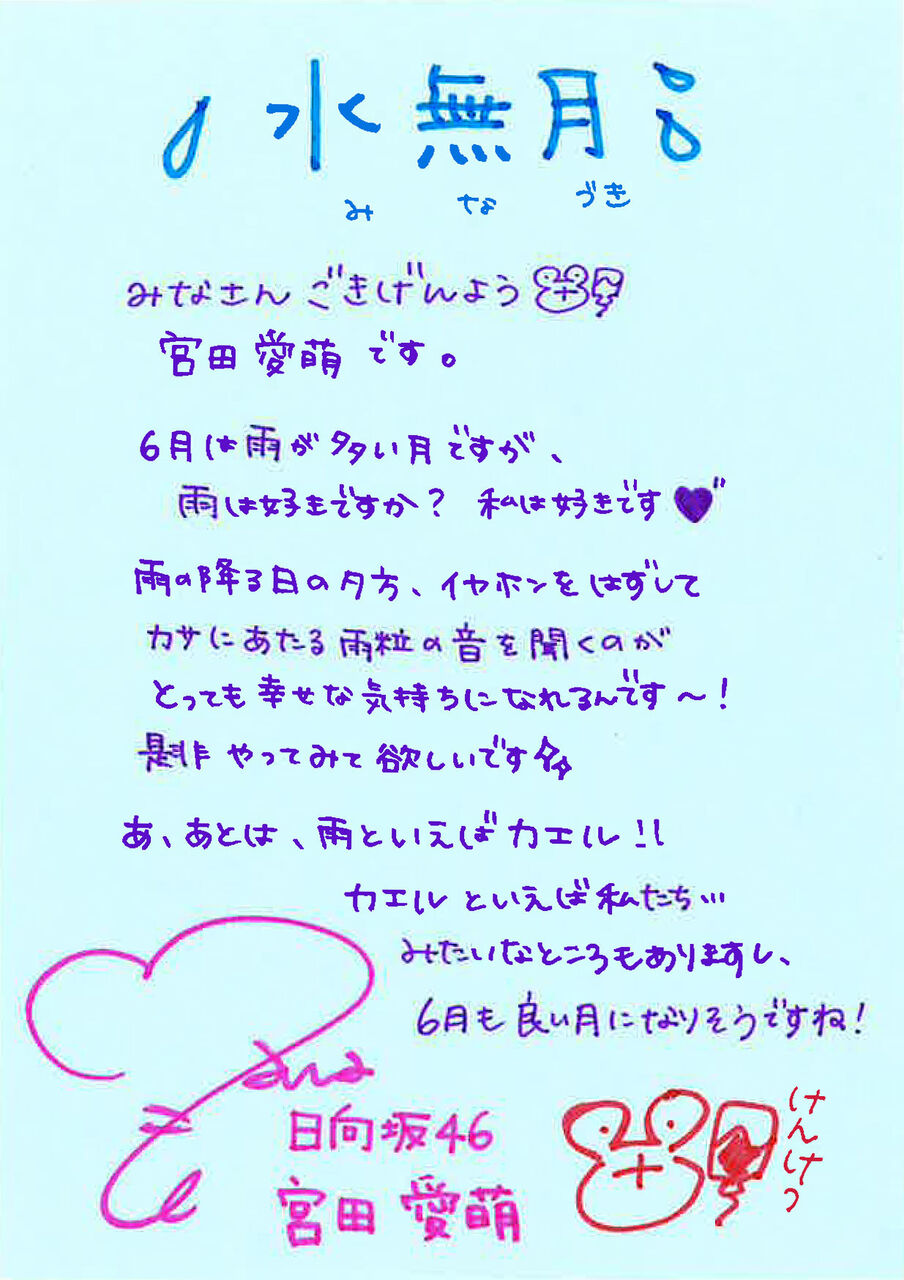 水無月
みなづき
みなさん ごきげんよう
宮田 愛萌 です。
6月は雨が多い月ですが、
雨は好きですか? 私は好きです
雨の降る日の夕方、イヤホンをはずして
カサにあたる雨粒の音を聞くのが
とっても幸せな気持ちになれるんです〜!
是非 やってみて欲しいです
あ、あとは、雨といえばカエル!!
カエルといえば私たち…
みたいなところもありますし、
6月も良い月になりそうですね!
日向坂46
宮田 愛萌
けんけつ